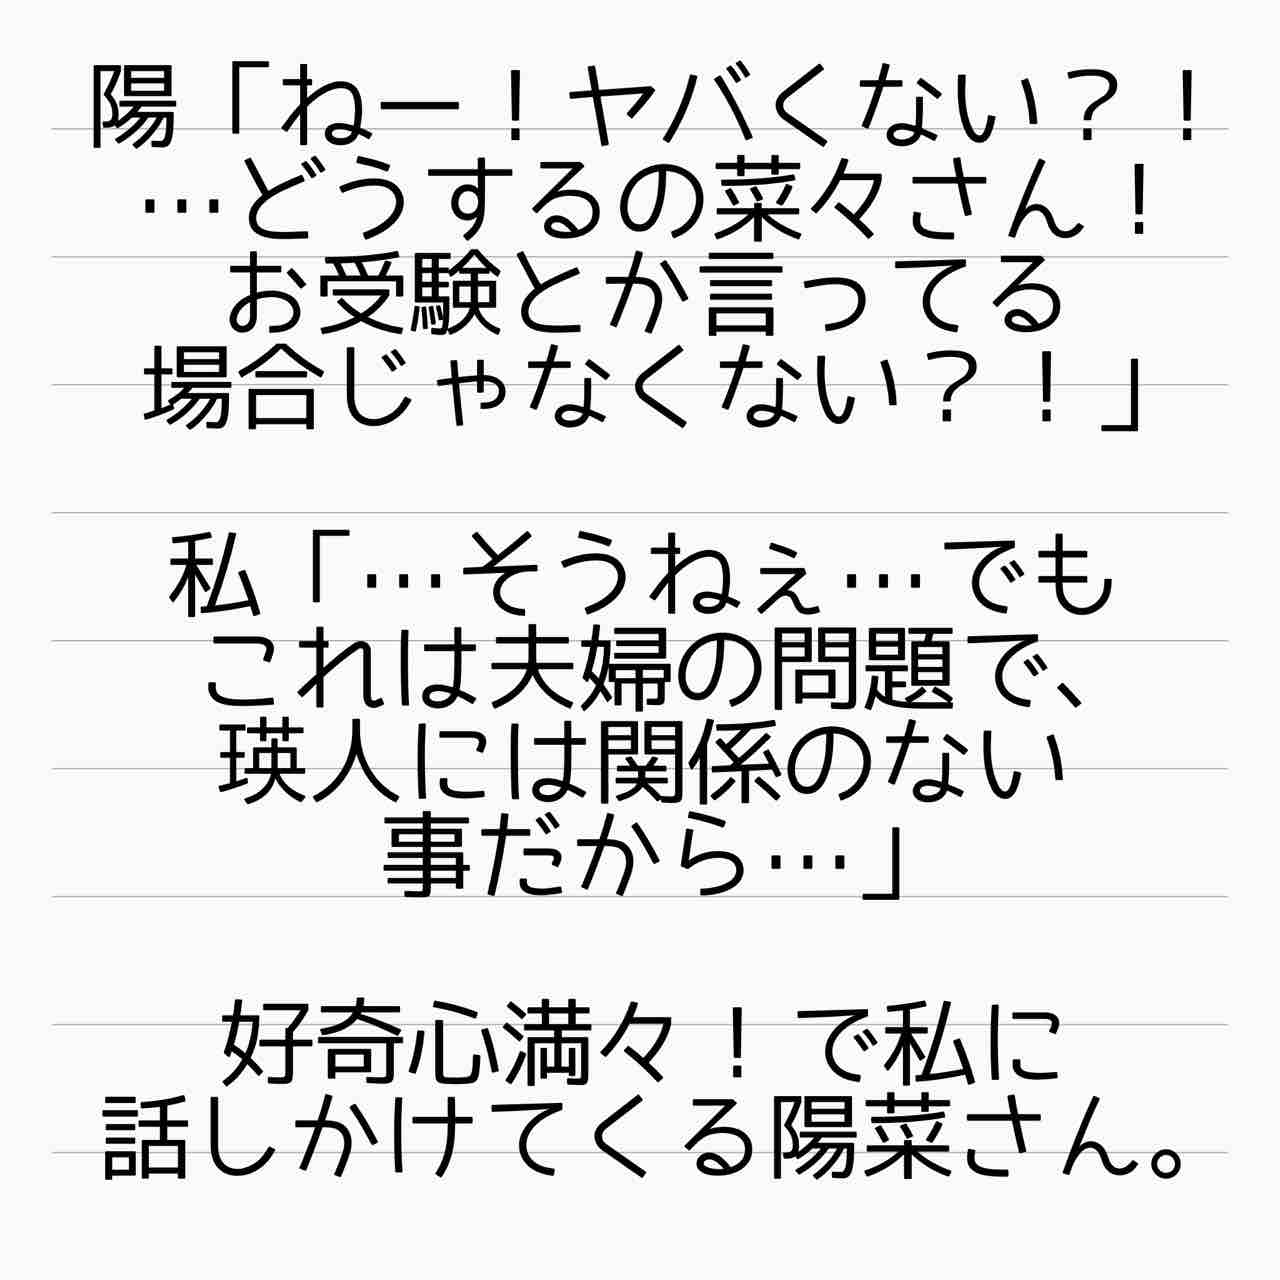 陽「ねー！ヤバくない？！
…どうするの菜々さん！
お受験とか言ってる
場合じゃなくない？！」
私「…そうねぇ…でも
これは夫婦の問題で、
瑛人には関係のない
事だから…」
好奇心満々！で私に
話しかけてくる陽菜さん。